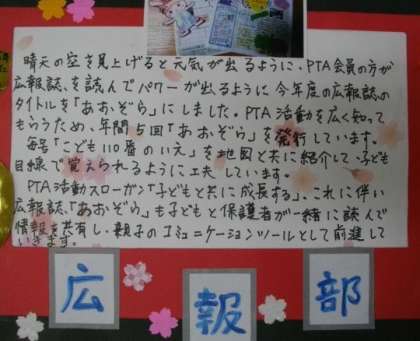 晴天の空を見上げると元気が出るように、PTA会員の方が
広報誌、を読んでパワーが出るように今年度の広報誌の
タイトルを「あおぞら」にしました。PTA活動を広く知って
もらうため、年間5回「あおぞら」を発行しています。
毎号「こども110番のいえ」を地図と共に紹介して、子ども
目線で覚えられるように工夫しています。
PTA活動スローガン「子どもと共に成長する」、これに伴い
広報誌、「あおぞら」も子どもと保護者が一緒に読んで
情報を共有し、親子のコミュニケーションツールとして前進して
いきます。
広報部